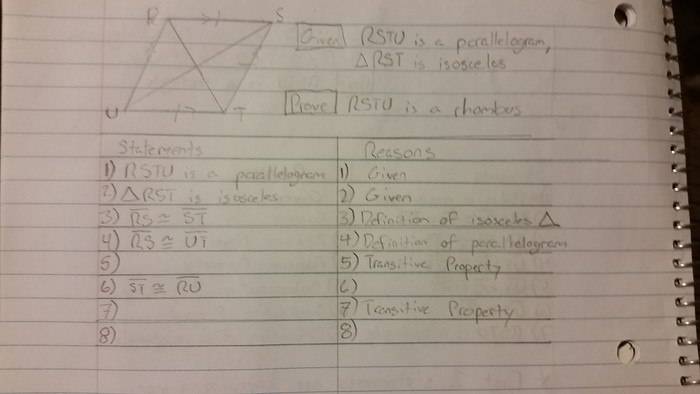 R S
U T
Given RSTU is a parallelogram,
△RST is isosceles
Prove RSTU is a rhombus
Statements Reasons
1) RSTU is a parallelogram 1) Given
2) △RST is isosceles 2) Given
3) RS ≅ ST 3) Definition of isosceles △
4) RS ≅ UT 4) Definition of parallelogram
5) 5) Transitive Property
6) ST ≅ RU 6)
7) 7) Transitive Property
8) 8)